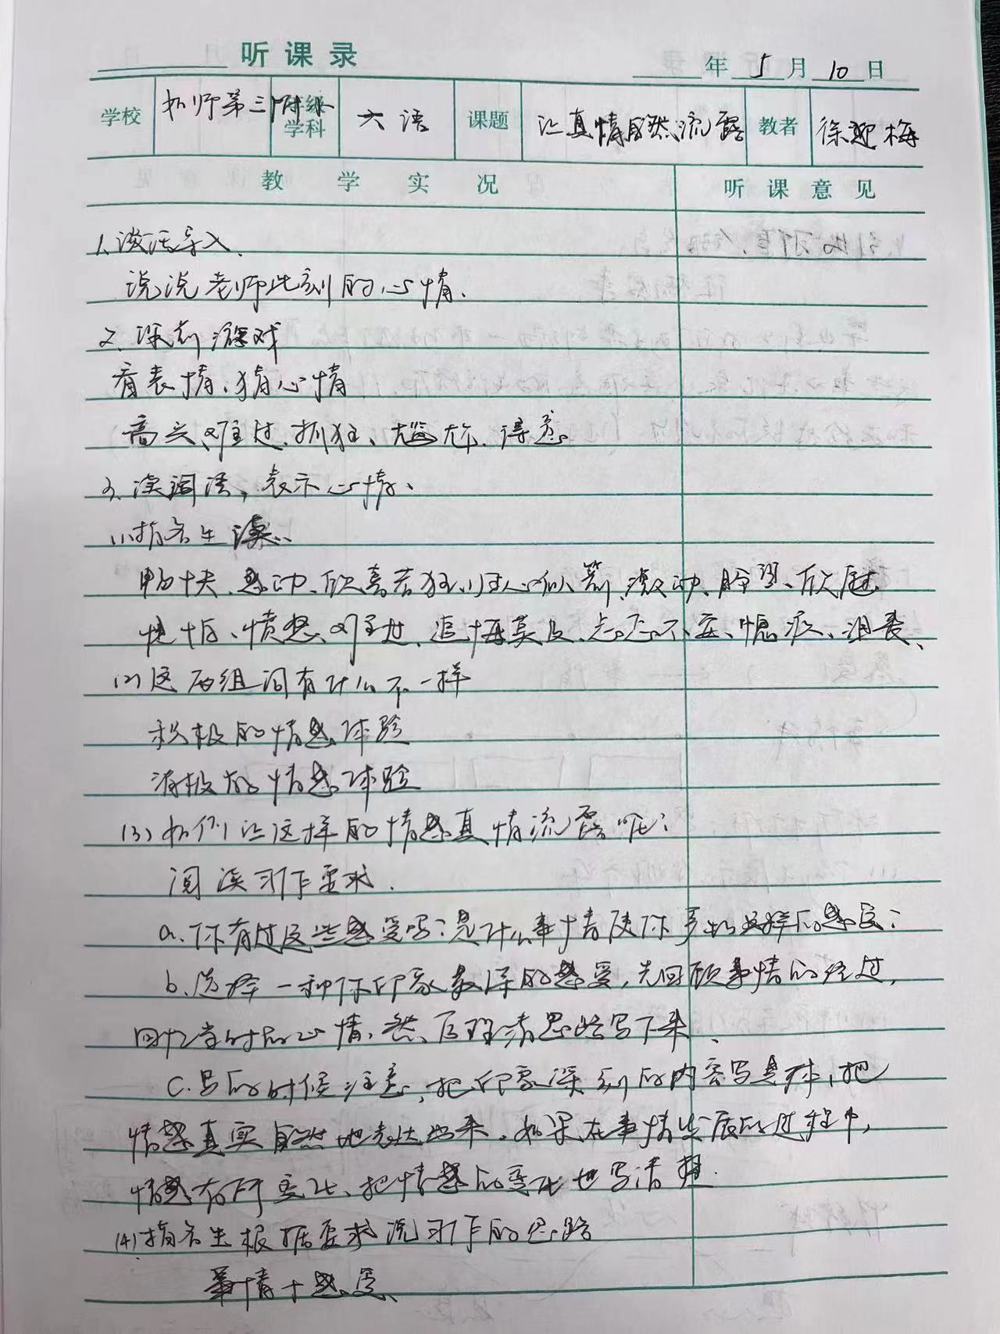 听课录
年 5 月 10 日
学校 师第三附小 年级学科 六语 课题 让真情自然流露 教者 徐迎梅
教学实况 听课意见
1.谈话导入
说说老师此刻的心情.
2.课前游戏
看表情、猜心情
高兴、难过、抓狂、尴尬、得意
3.读词语,表示心情、
(1)指名生读
畅快、感动、欣喜若狂、归心似箭、激动、盼望、欣慰
愤怒、难过、追悔莫及、忐忑不安、愧疚、沮丧、
(2)这两组词有什么不一样
积极的情感体验
消极的情感体验
(3)如何让这样的情感真情流露呢?
阅读习作要求.
a.你有过这些感受吗?是什么事情使你产生这样的感受?
b.选择一种你印象最深的感受,先回顾事情的经过,
回忆当时的心情,然后理清思路写下来、
C.写的时候注意,把印象深刻的内容写具体,把
情感真实自然地表达出来。如果在事情发展的过程中,
情感有所变化、把情感的变化也写清楚
(4)指名生根据要求说习作的思路
事情+感受、